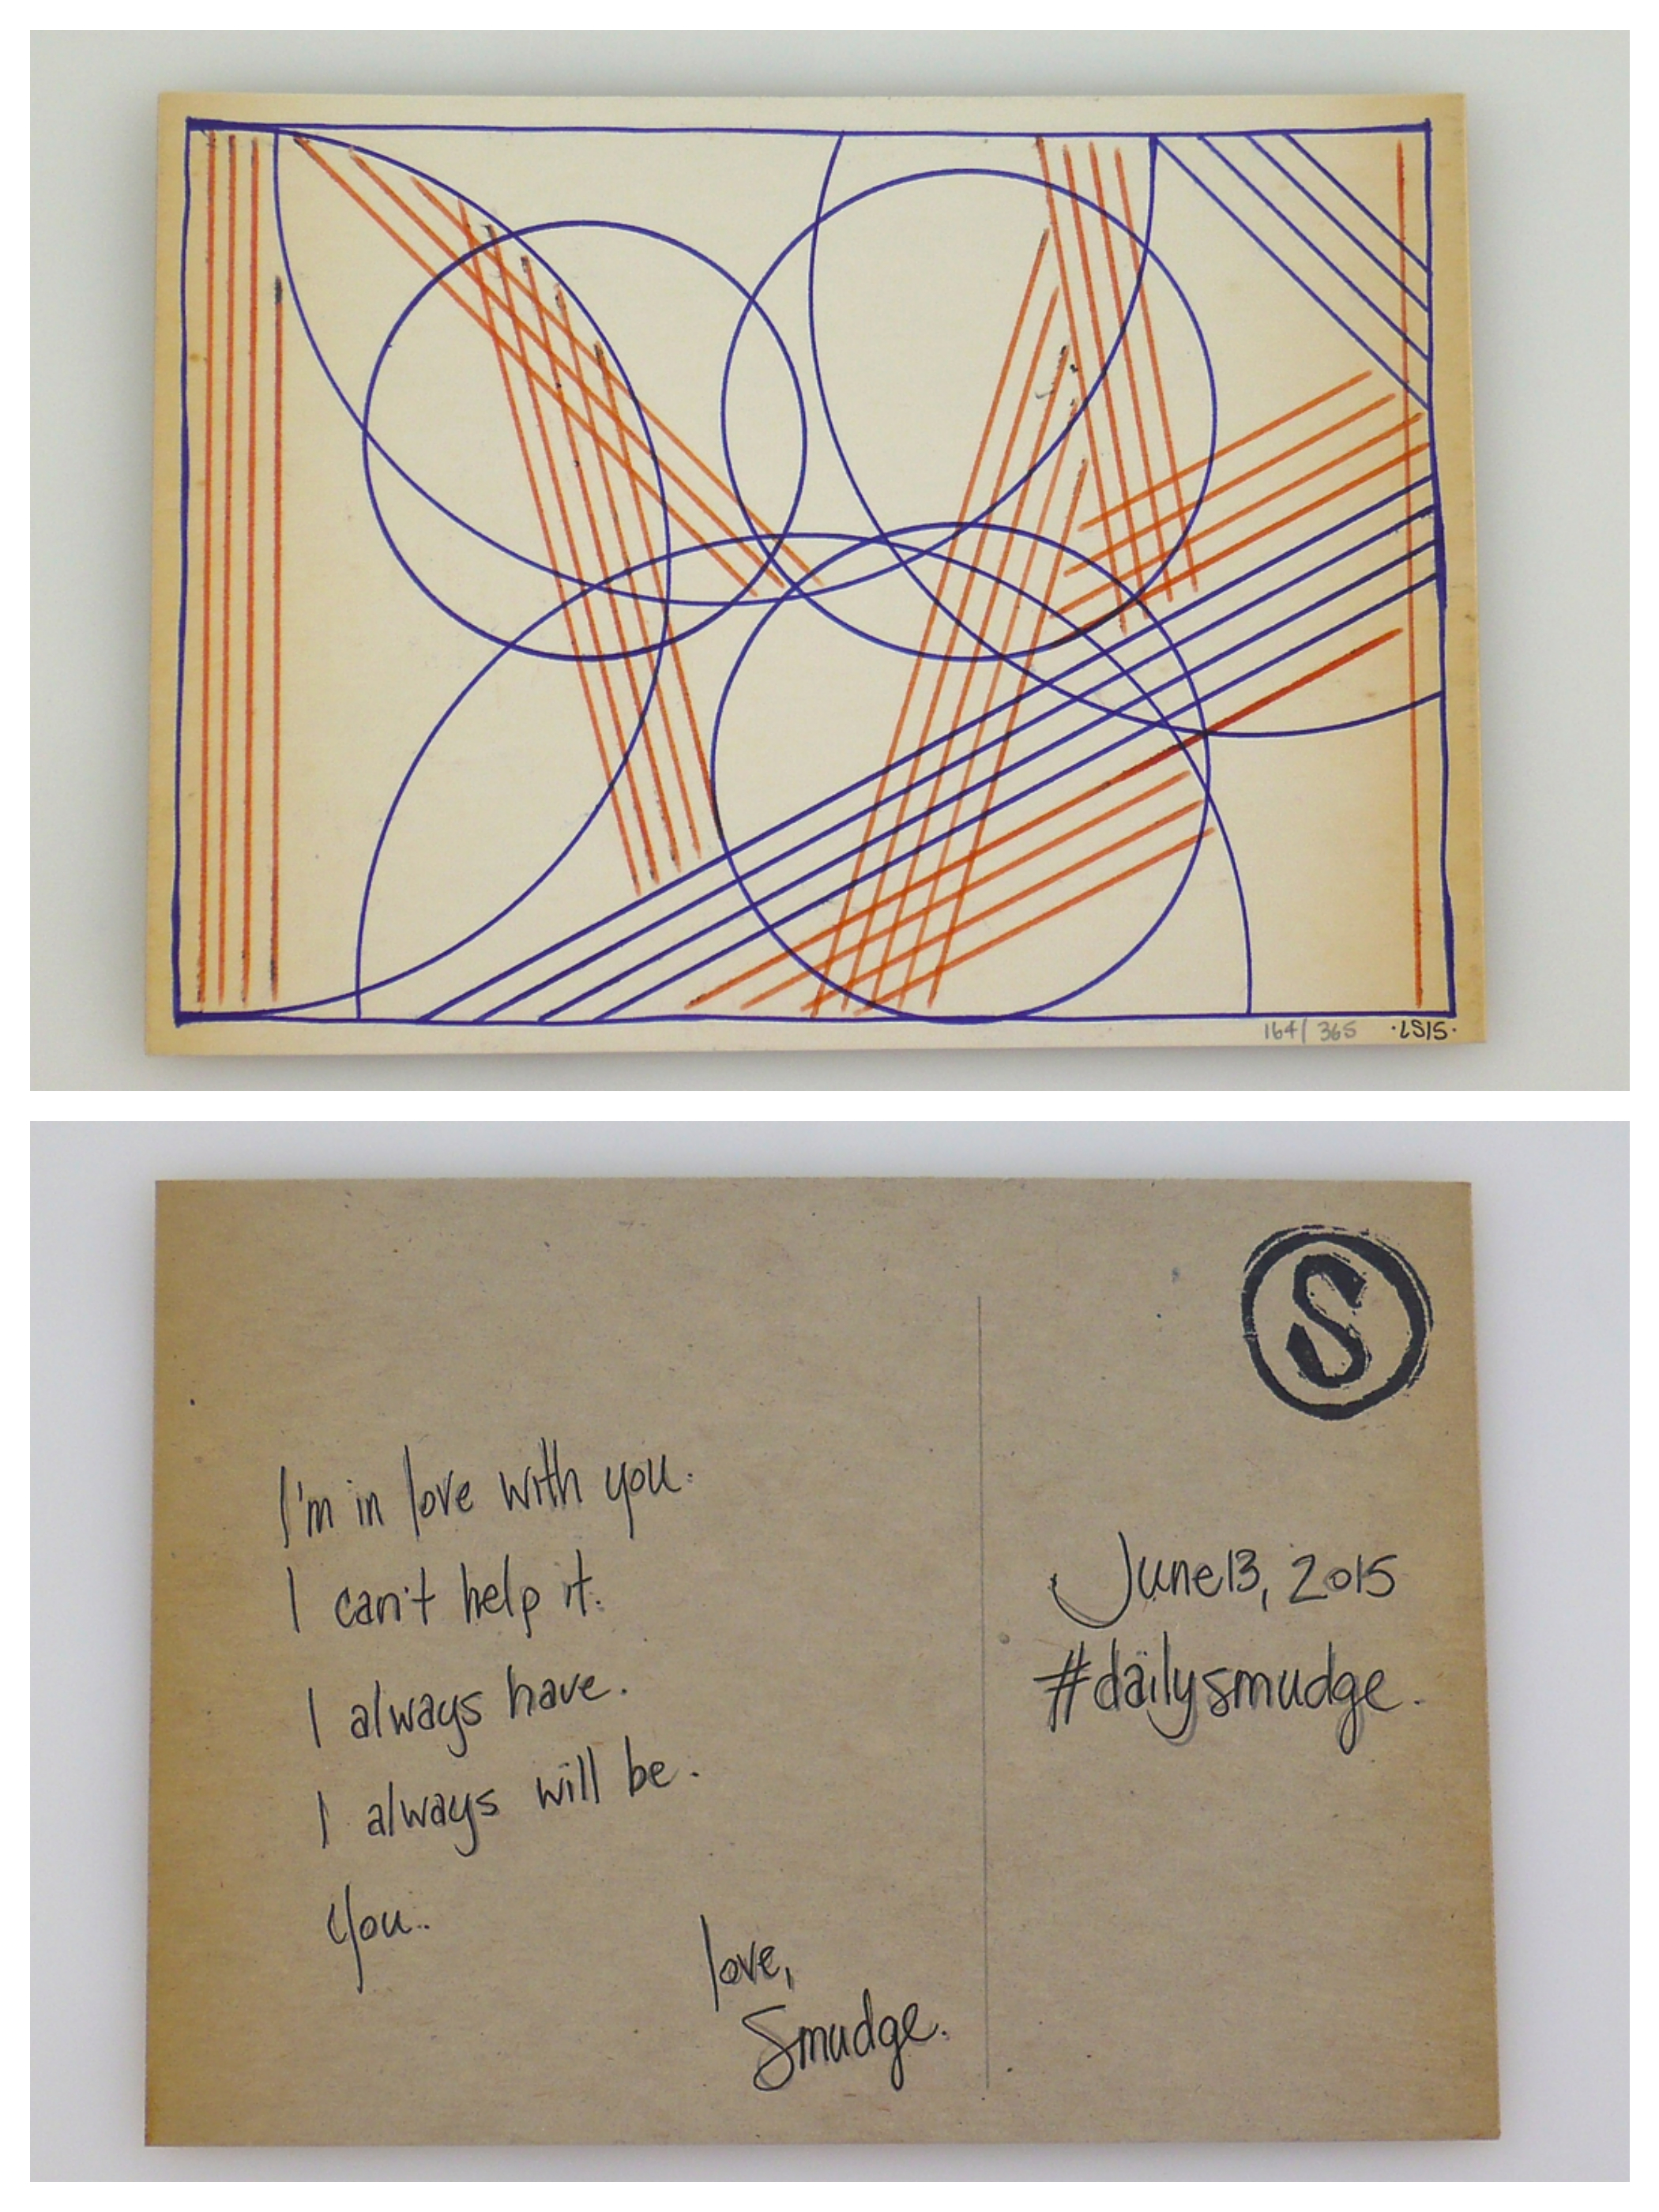 164/365 ·LS15·
S
I'm in love with you.
I can't help it.
I always have.
I always will be.
You..
love,
Smudge.
June 13, 2015
#dailysmudge.